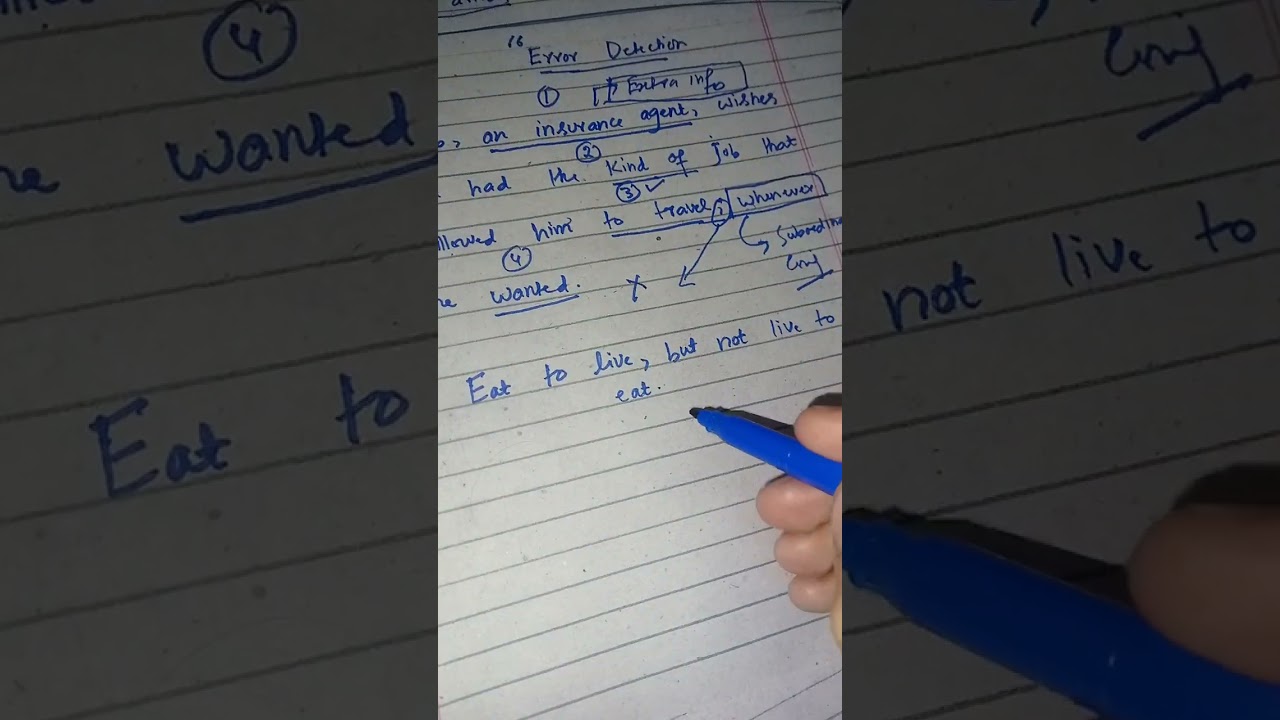 " Error Detection
① Extra info
, an insurance agent, wishes
②
had the kind of job that
③ ✓
allowed him to travel, whenever
④
wanted. X
Conj
Eat to live, but not live to
eat.